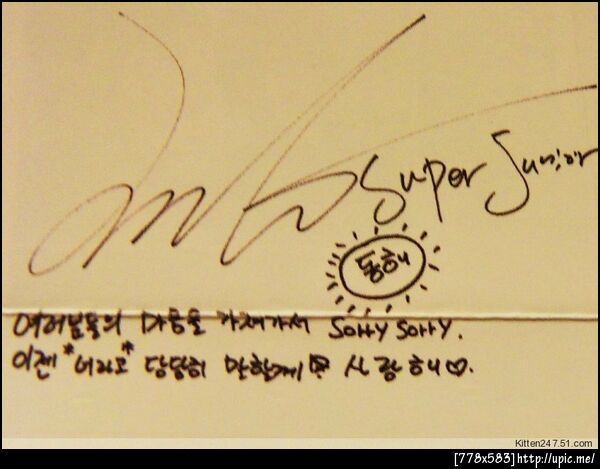 Super Junior
동해
여러분들의 마음을 가져가서 Sorry Sorry.
이젠 *너라고* 당당히 말할게 사랑해♡.
Kitten247.51.com
[778x583]http://upic.me/